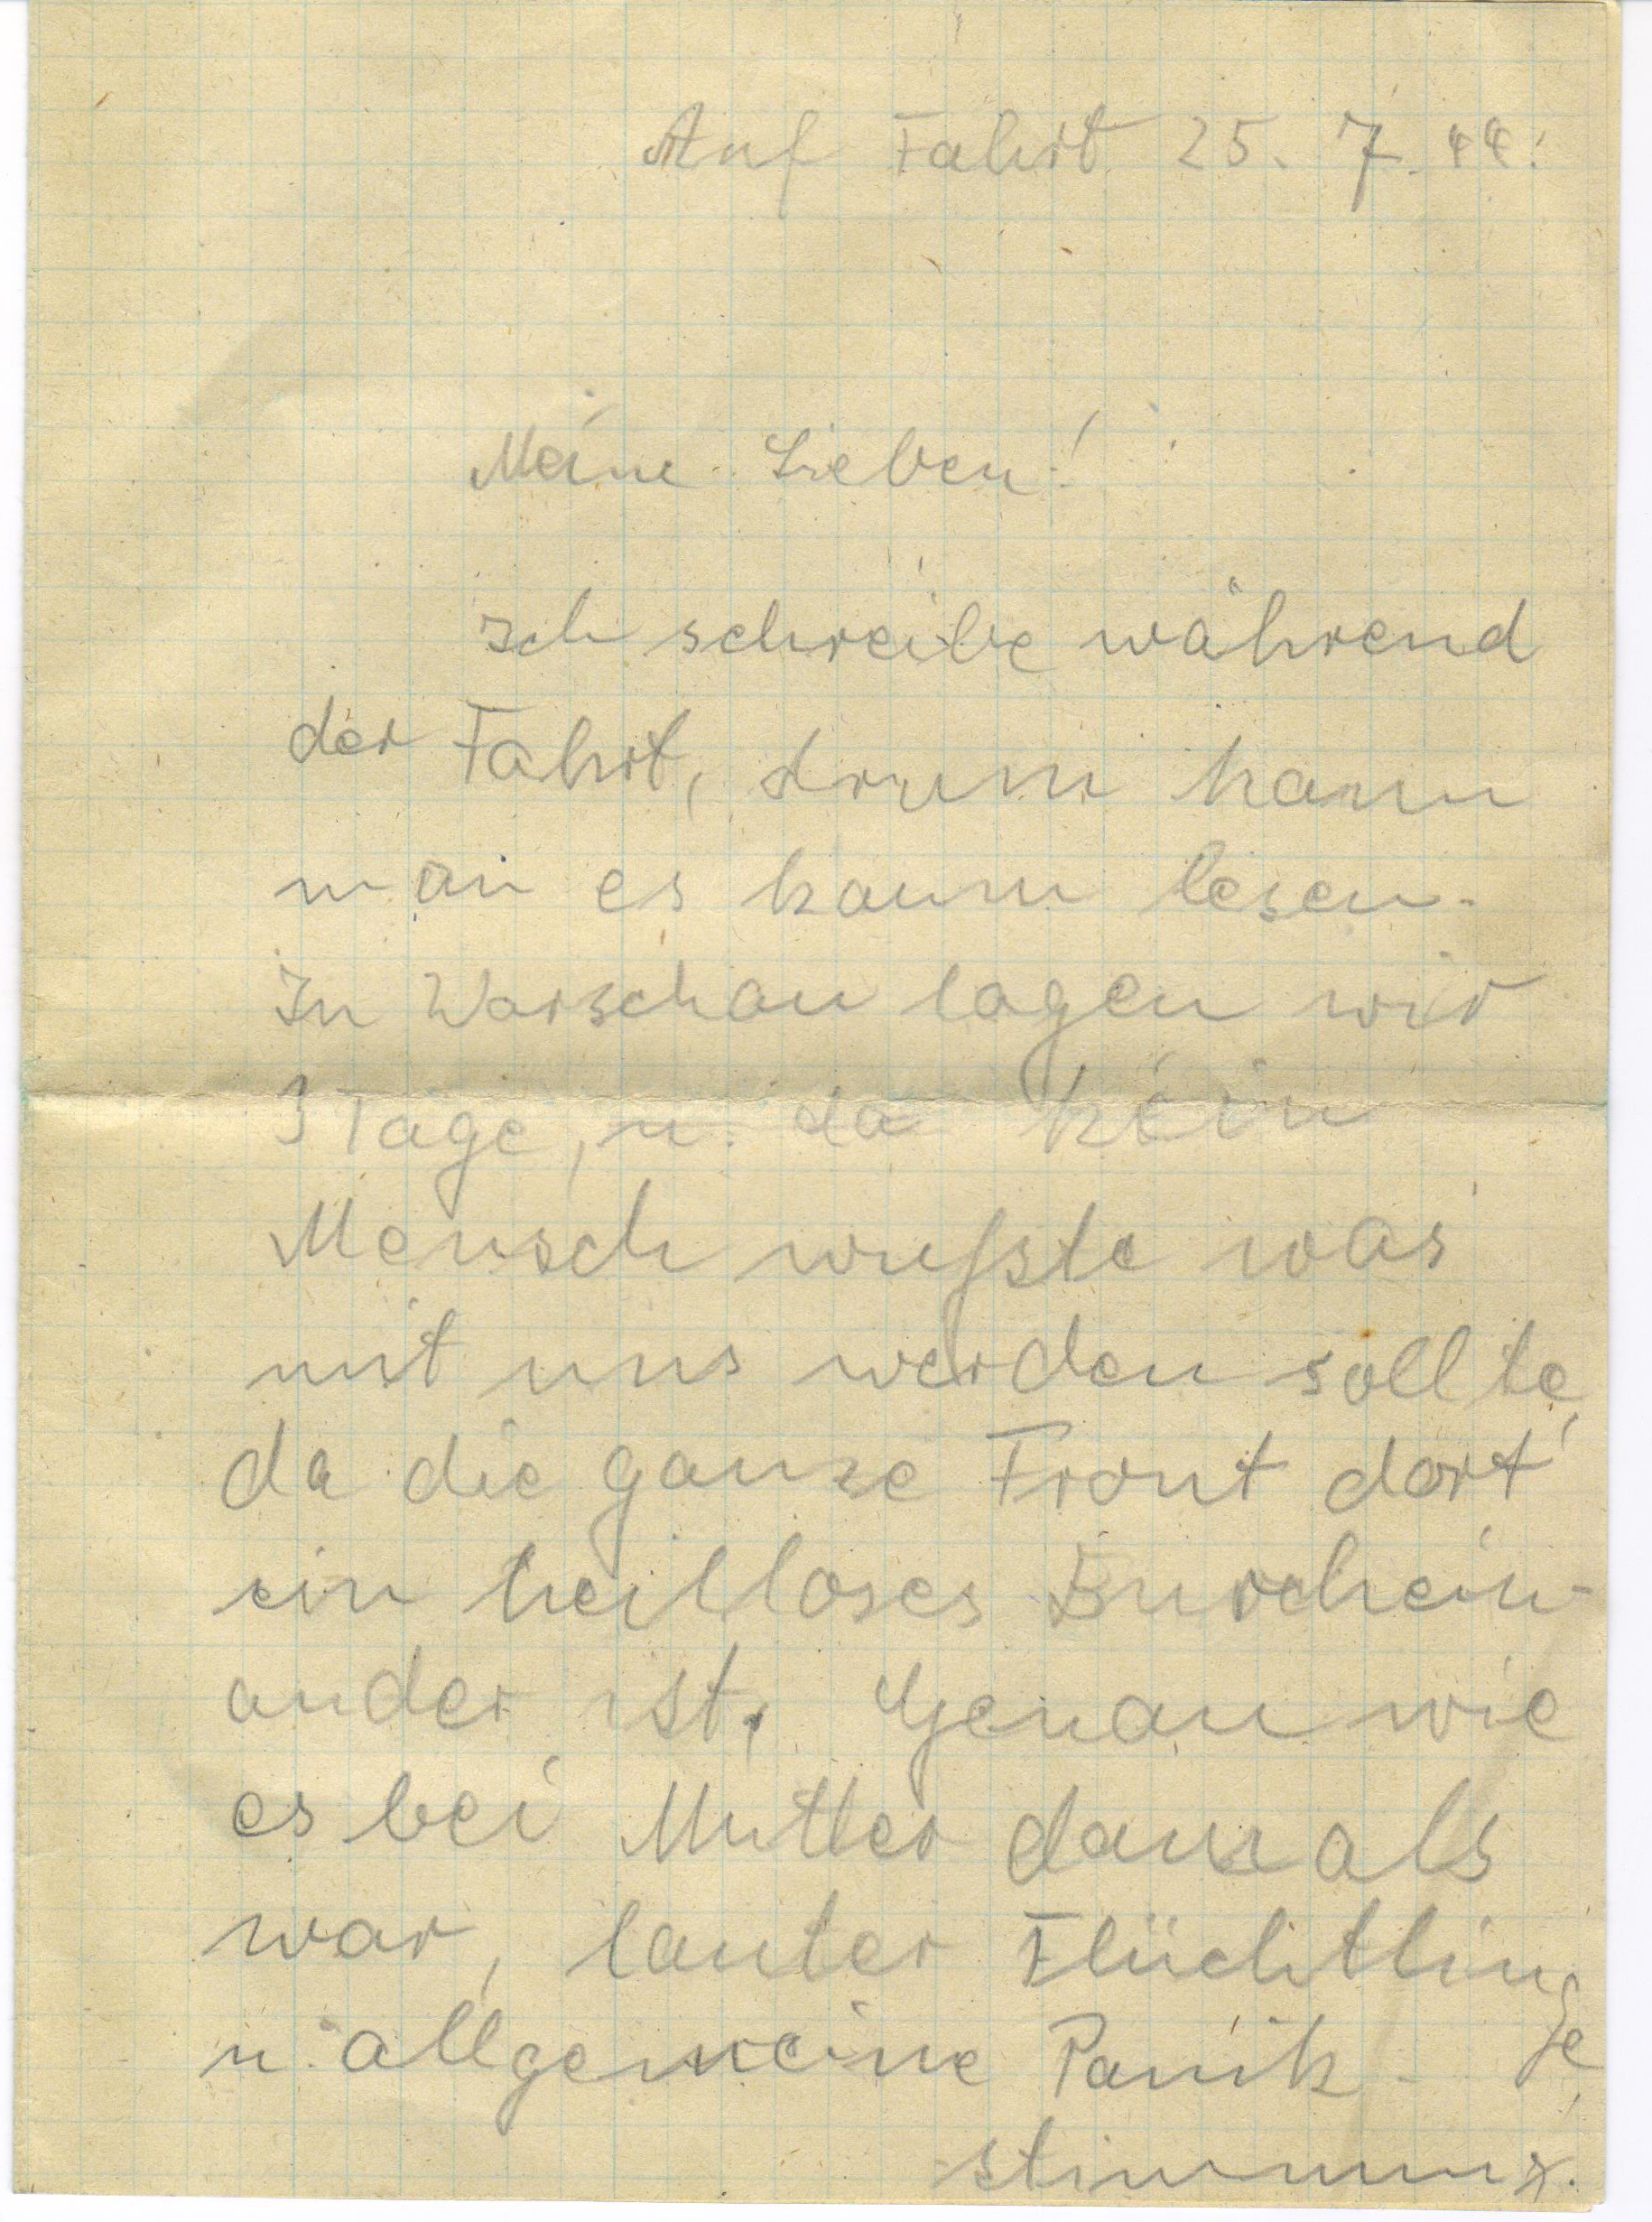 Auf Fahrt 25. 7. 44.
Meine Lieben!
Ich schreibe während
der Fahrt, drum kann
man es kaum lesen.
In Warschau lagen wir
3 Tage, u. da kein
Mensch wußste was
mit uns werden sollte,
da die ganze Front dort
ein heilloses Durchein-
ander ist. Genau wie
es bei Mutter damals
war, lauter Flüchtlinge
u. allgemeine Panik-
stimmung.